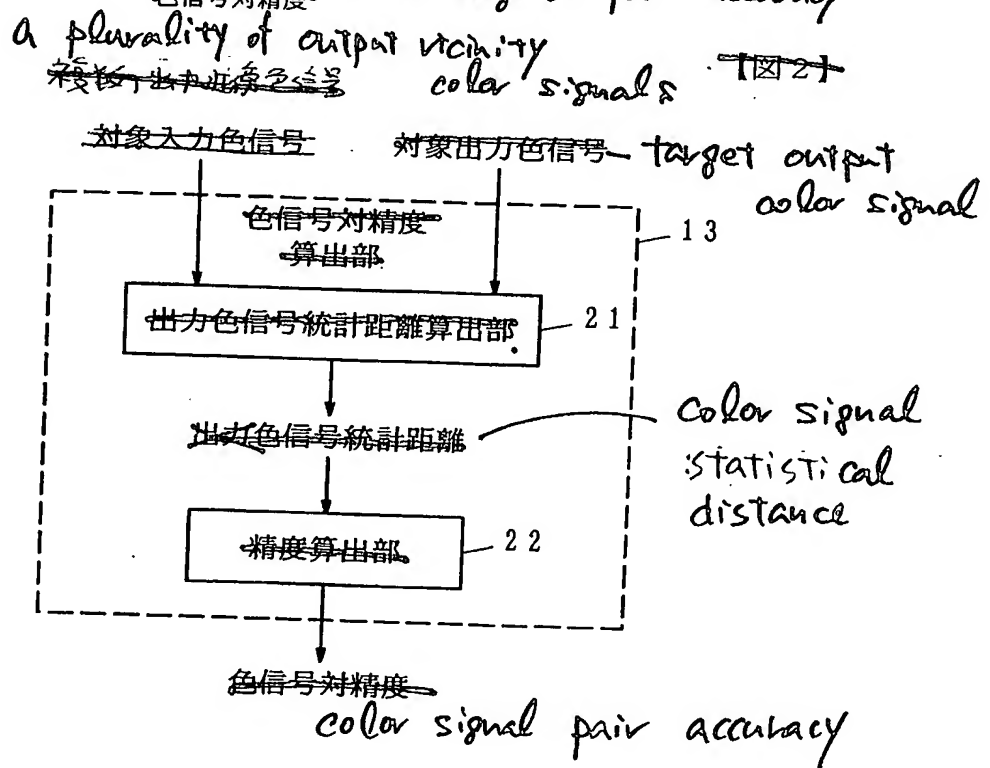 色信号対精度
a plurality of output vicinity
color signals
【図2】
対象入力色信号
対象出力色信号
target output
color signal
色信号対精度
算出部
13
出力色信号統計距離算出部
21
出力色信号統計距離
color signal
statistical
distance
精度算出部
22
色信号対精度
color signal pair accuracy